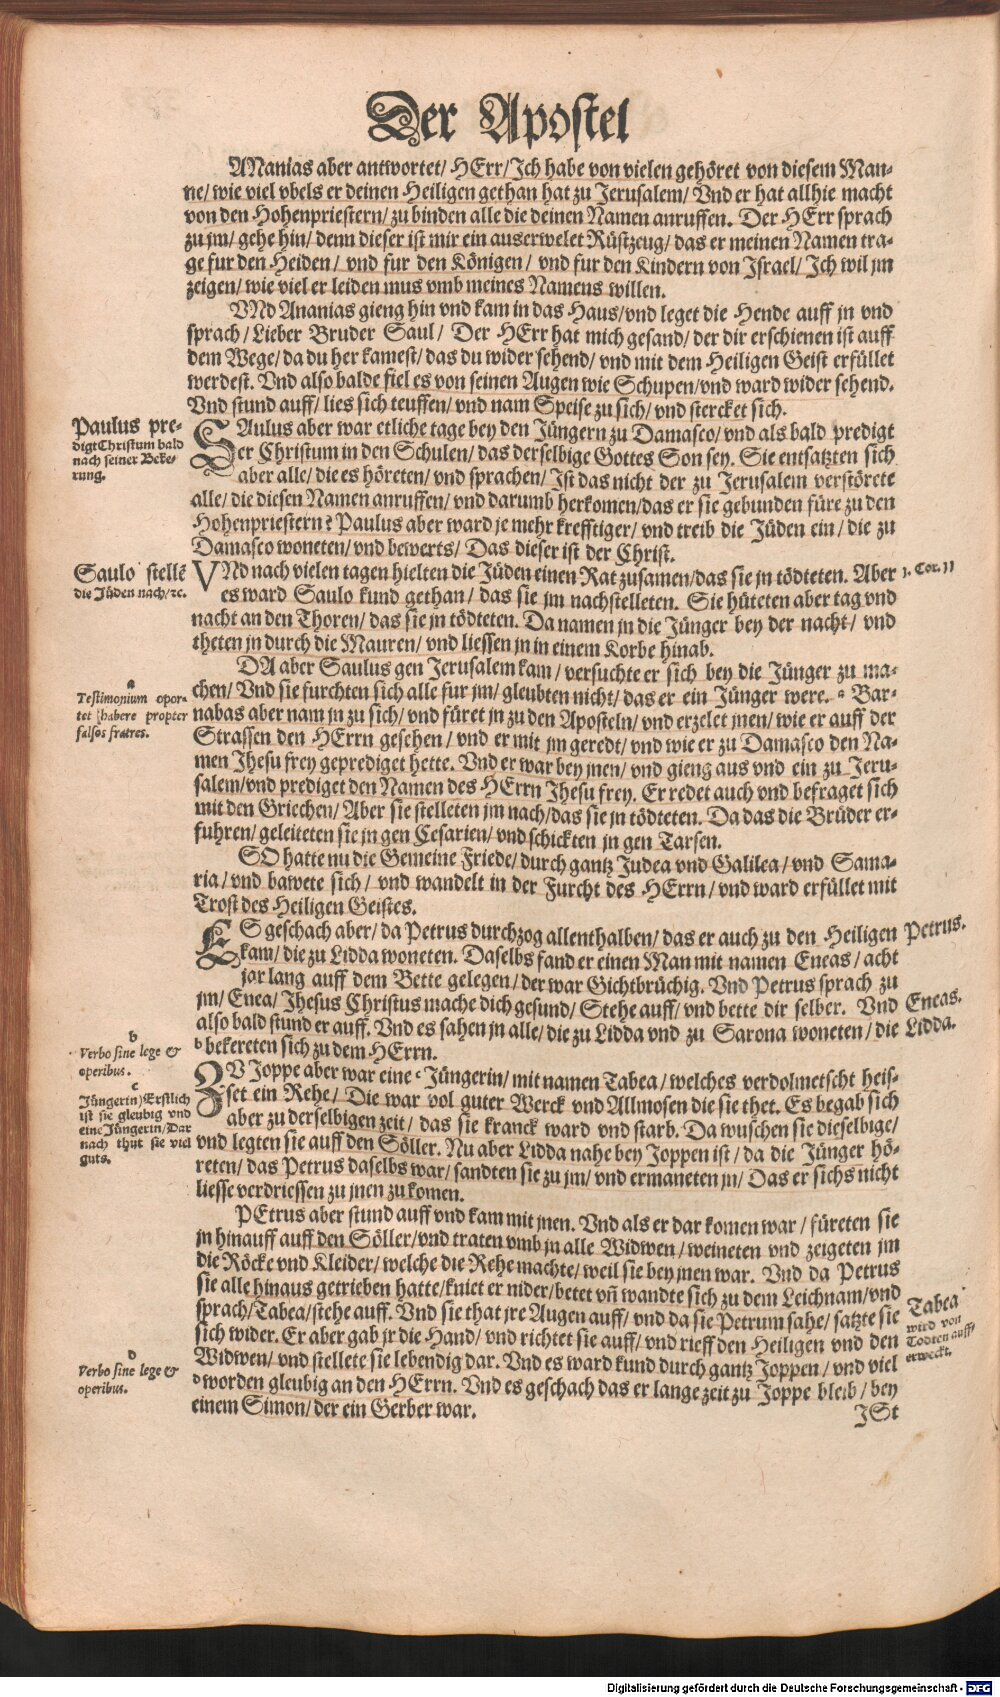 Der Apostel
ANanias aber antwortet/ HErr/ Ich habe von vielen gehöret von diesem Man-
ne/ wie viel vbels er deinen Heiligen gethan hat zu Jerusalem/ Vnd er hat allhie macht
von den Hohenpriestern/ zu binden alle die deinen Namen anruffen. Der HErr sprach
zu jm/ gehe hin/ denn dieser ist mir ein auserwelet Rüstzeug/ das er meinen Namen tra-
ge fur den Heiden/ vnd fur den Königen/ vnd fur den Kindern von Israel/ Ich wil jm
zeigen/ wie viel er leiden mus vmb meines Namens willen.
VNd Ananias gieng hin vnd kam in das Haus/ vnd leget die Hende auff jn vnd
sprach/ Lieber Bruder Saul/ Der HErr hat mich gesand/ der dir erschienen ist auff
dem Wege/ da du her kamest/ das du wider sehend/ vnd mit dem Heiligen Geist erfüllet
werdest. Vnd also balde fiel es von seinen Augen wie Schupen/ vnd ward wider sehend.
Vnd stund auff/ lies sich teuffen/ vnd nam Speise zu sich/ vnd stercket sich.
Paulus pre-
digt Christum bald
nach seiner Beke-
rung.
SAulus aber war etliche tage bey den Jüngern zu Damasco/ vnd als bald predigt
er Christum in den Schulen/ das derselbige Gottes Son sey. Sie entsatzten sich
aber alle/ die es höreten/ vnd sprachen/ Ist das nicht der zu Jerusalem verstörete
alle/ die diesen Namen anruffen/ vnd darumb herkomen/ das er sie gebunden füre zu den
Hohenpriestern? Paulus aber ward je mehr krefftiger/ vnd treib die Jüden ein/ die zu
Damasco woneten/ vnd bewerts/ Das dieser ist der Christ.
Saulo stellē
die Jüden nach/ ꝛc.
VNd nach vielen tagen hielten die Jüden einen Rat zusamen/ das sie jn tödteten. Aber
1. Cor. 11
es ward Saulo kund gethan/ das sie jm nachstelleten. Sie hüteten aber tag vnd
nacht an den Thoren/ das sie jn tödteten. Da namen jn die Jünger bey der nacht/ vnd
theten jn durch die Mauren/ vnd liessen jn in einem Korbe hinab.
DA aber Saulus gen Jerusalem kam/ versuchte er sich bey die Jünger zu ma-
chen/ Vnd sie furchten sich alle fur jm/ gleubten nicht/ das er ein Jünger were. a Bar-
nabas aber nam jn zu sich/ vnd füret jn zu den Aposteln/ vnd erzelet jnen/ wie er auff der
Strassen den HErrn gesehen/ vnd er mit jm geredt/ vnd wie er zu Damasco den Na-
men Jhesu frey geprediget hette. Vnd er war bey jnen/ vnd gieng aus vnd ein zu Jeru-
salem/ vnd prediget den Namen des HErrn Jhesu frey. Er redet auch vnd befraget sich
mit den Griechen/ Aber sie stelleten jm nach/ das sie jn tödteten. Da das die Brüder er-
fuhren/ geleiteten sie jn gen Cesarien/ vnd schickten jn gen Tarsen.
a
Testimonium opor-
tet habere propter
falsos fratres.
SO hatte nu die Gemeine Friede/ durch gantz Judea vnd Galilea/ vnd Sama-
ria/ vnd bawete sich/ vnd wandelt in der Furcht des HErrn/ vnd ward erfüllet mit
Trost des Heiligen Geistes.
ES geschach aber/ da Petrus durchzog allenthalben/ das er auch zu den Heiligen
kam/ die zu Lidda woneten. Daselbs fand er einen Man mit namen Eneas/ acht
jar lang auff dem Bette gelegen/ der war Gichtbrüchig. Vnd Petrus sprach zu
jm/ Enea/ Jhesus Christus mache dich gesund/ Stehe auff/ vnd bette dir selber. Vnd
also bald stund er auff. Vnd es sahen jn alle/ die zu Lidda vnd zu Sarona woneten/ die
b bekereten sich zu dem HErrn.
Petrus.
Eneas.
Lidda.
b
Verbo sine lege &
operibus.
c
Jüngerin) Erstlich
ist sie gleubig vnd
eine Jüngerin/ Dar
nach thut sie viel
guts.
ZV Joppe aber war eine c Jüngerin/ mit namen Tabea/ welches verdolmetscht heis-
set ein Rehe/ Die war vol guter Werck vnd Allmosen die sie thet. Es begab sich
aber zu derselbigen zeit/ das sie kranck ward vnd starb. Da wuschen sie dieselbige/
vnd legten sie auff den Söller. Nu aber Lidda nahe bey Joppen ist/ da die Jünger hö-
reten/ das Petrus daselbs war/ sandten sie zu jm/ vnd ermaneten jn/ Das er sichs nicht
liesse verdriessen zu jnen zu komen.
PEtrus aber stund auff vnd kam mit jnen. Vnd als er dar komen war/ füreten sie
jn hinauff auff den Söller/ vnd traten vmb jn alle Widwen/ weineten vnd zeigeten jm
die Röcke vnd Kleider/ welche die Rehe machte/ weil sie bey jnen war. Vnd da Petrus
sie alle hinaus getrieben hatte/ kniet er nider/ betet vn̄ wandte sich zu dem Leichnam/ vnd
sprach/ Tabea/ stehe auff. Vnd sie that jre Augen auff/ vnd da sie Petrum sahe/ satzte sie
sich wider. Er aber gab jr die Hand/ vnd richtet sie auff/ vnd rieff den Heiligen vnd den
Widwen/ vnd stellete sie lebendig dar. Vnd es ward kund durch gantz Joppen/ vnd viel
d worden gleubig an den HErrn. Vnd es geschach das er lange zeit zu Joppe bleib/ bey
einem Simon/ der ein Gerber war.
Tabea
wird von
Todten auff/
erweckt.
d
Verbo sine lege &
operibus.
ISt
Digitalisierung gefördert durch die Deutsche Forschungsgemeinschaft - DFG